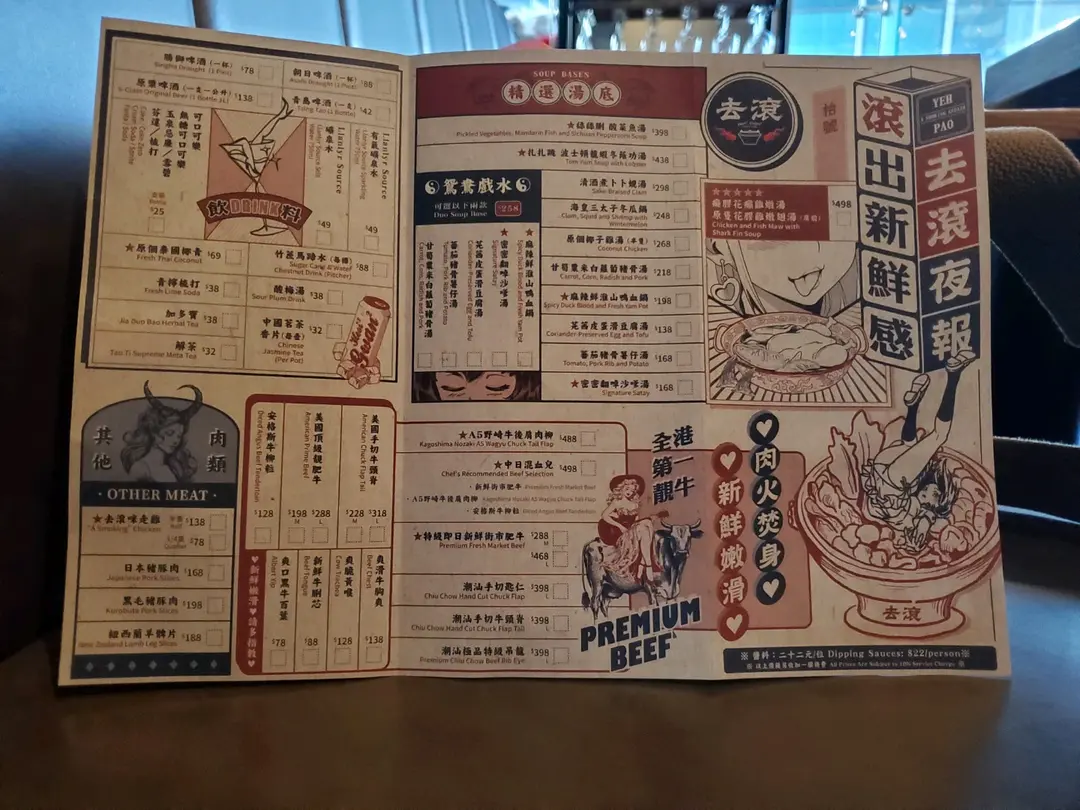 勝獅啤酒（一杯）
Singha Draught (1 Pint)
$78
朝日啤酒（一杯）
Asahi Draught (1 Pint)
$88
原漿啤酒（一支一公升）
$138
青島啤酒（一支）
Tsing Tao (1 Bottle)
$42
可口可樂
無糖可口可樂
玉泉忌廉／雲碧
芬達／梳打
Coke / Coke Zero
Cream Soda / Sprite
Fanta / Soda
$25
Llanllyr Source
礦泉水
$49
Llanllyr Source
有氣礦泉水
$49
飲DRINK料
★原個泰國椰青
Fresh Thai Coconut
$69
竹蔗馬蹄水（每穜）
Sugar Cane & Water
Chestnut Drink (Pitcher)
$88
青檸梳打
Fresh Lime Soda
$38
酸梅湯
Sour Plum Drink
$38
加多寶
Jia Duo Bao Herbal Tea
$38
中國茗茶
香片（每壺）
Chinese
Jasmine Tea
(Per Pot)
$32
解茶
Tao Ti Supreme Meta Tea
$32
其他肉類
· OTHER MEAT ·
★去滾味走雞
"A Smoking" Chicken
$138
$78
日本豬豚肉
Japanese Pork Slices
$168
黑毛豬豚肉
Kurobuta Pork Slices
$198
紐西蘭羊髀片
New Zealand Lamb Leg Slices
$188
安格斯牛柳粒
Diced Angus Beef Tenderloin
$128
美國頂級靚肥牛
American Prime Beef
$198 M
$288 L
美國手切牛頸脊
American Chuck Flap Tail
$228 M
$318 L
♥新鮮嫩滑♥請多指教♥
爽口黑牛百葉
$78
新鮮牛脷芯
Beef Tongue
$88
爽脆黃喉
Cow Trachea
$128
爽滑牛胸爽
Beef Chest
$138
SOUP BASES
精選湯底
★硺硺脷 酸菜魚湯
Pickled Vegetables, Mandarin Fish and Sichuan Peppercorn Soup
$398
★扎扎跳 波士頓龍蝦冬蔭功湯
Tom Yum Soup with Lobster
$438
鴛鴦戲水
可選以下兩款
Duo Soup Base
$258
★麻辣鮮淮山鴨血鍋
Spicy Duck Blood and Fresh Yam Pot
★密密㔆味沙嗲湯
Signature Satay
芫茜皮蛋滑豆腐湯
Coriander, Preserved Egg and Tofu
蕃茄豬骨薯仔湯
Tomato, Pork Rib and Potato
甘筍粟米白蘿蔔豬骨湯
Carrot, Corn, Radish and Pork
清酒煮卜卜蜆湯
Sake Braised Clam
$298
海皇三太子冬瓜鍋
Clam, Squid and Shrimp with
Wintermelon
$248
原個椰子雞湯（半隻）
Coconut Chicken
$268
甘筍粟米白蘿蔔豬骨湯
Carrot, Corn, Radish and Pork
$218
★麻辣鮮淮山鴨血鍋
Spicy Duck Blood and Fresh Yam
$198
芫茜皮蛋滑豆腐湯
Coriander, Preserved Egg and Tofu
$138
蕃茄豬骨薯仔湯
Tomato, Pork Rib and Potato
$168
★密密㔆味沙嗲湯
Signature Satay
$168
★A5野崎牛後肩肉柳
Kagoshima Nozaki A5 Wagyu Chuck Tail Flap
$488
★中日混血兒
Chef's Recommended Beef Selection
$498
· 新鮮街市肥牛 Premium Fresh Market Beef
· A5野崎牛後肩肉柳 Kagoshima Nozaki A5 Wagyu Chuck Tail Flap
· 安格斯牛柳粒 Diced Angus Beef Tenderloin
★特級即日新鮮街市肥牛
Premium Fresh Market Beef
$288 M
$468 L
潮汕手切匙仁
Chiu Chow Hand Cut Chuck Flap
$398 L
潮汕手切牛頸脊
Chiu Chow Hand Cut Chuck Flap Tail
$398 L
潮汕極品特級吊龍
Premium Chiu Chow Beef Rib Eye
$398 L
全港第一靚牛
PREMIUM
BEEF
去滾
枱號
★★★★★
原隻花膠雞燉翅湯
Chicken and Fish Maw with
Shark Fin Soup
$498
滾出新鮮感
YEH
PAO
去滾夜報
♥肉火焚身♥
♥新鮮嫩滑♥
去滾
※ 醬料：二十二元/位 Dipping Sauces: $22/person※
※ 以上價錢另收加一服務費 All Prices Are Subject to 10% Service Charge. ※